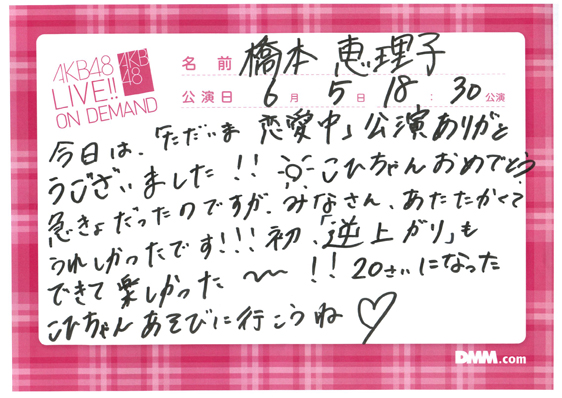 AKB48
LIVE!!
ON DEMAND
AKB
48
名前 橋本 恵理子
公演日 6月 5日 18:30公演
今日は、「ただいま 恋愛中」公演ありがと
うございました!! こひちゃんおめでとう
急きょだったのですが、みなさん、あたたかくて
うれしかったです!!! 初、「逆上がり」も
できて楽しかった〜!! 20さいになった
こひちゃんあそびに行こうね♡
DMM.com